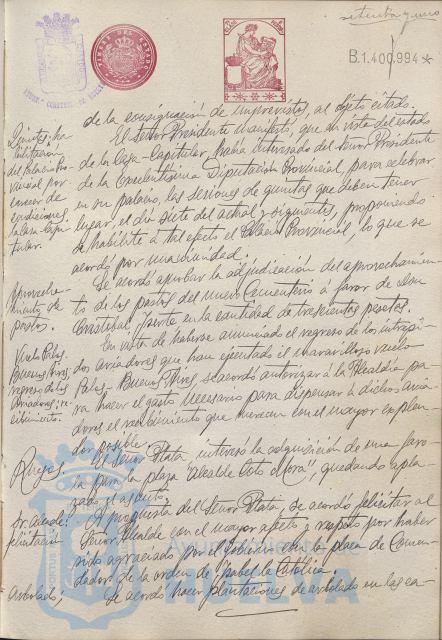 setenta y uno
TIMBRE DEL ESTADO
B.1.400,994 *
de la consignación de imprevistos, al objeto citado.
Quintas, ha
bilitación
del palacio Pro
vincial por
carecer de
condiciones
la casa Capi
tular.
El Señor Presidente manifestó, que en vista del estado
de la Casa-Capitular, había interesado del Señor Presidente
de la Excelentísima Diputación Provincial, para celebrar
en su palacio, las sesiones de quintas que deben tener
lugar, el día siete del actual y siguientes, proponiendo
se habilite a tal efecto el Palacio Provincial, lo que se
acordó por unanimidad.
Aprovecha
miento de
pastos.
Se acordó aprobar la adjudicación del aprovechamien-
to de los pastos del nuevo Cementerio á favor de Don
Cristobal en la cantidad de trescientas pesetas.
Vuelo Palos
Buenos Aires,
regreso de los
Aviadores; re
cibimiento.
En vista de haberse anunciado el regreso de los intrépi-
dos aviadores que han ejecutado el maravilloso vuelo
Palos-Buenos Aires, se acordó autorizar á la Alcaldía pa-
ra hacer el gasto necesario para dispensar á dichos avia-
dores el recibimiento que merecen con el mayor esplen-
dor posible.
Ruegos
El Señor Plata, interesó la adquisición de una faro-
la para la plaza "Alcalde Coto Mora", quedando apla-
zado el asunto.
Sr. Alcalde:
felicitación
A propuesta del Señor Plata, se acordó felicitar al
Señor Alcalde con el mayor afecto y respeto por haber
sido agraciado por el Gobierno con la placa de Comen-
dador de la orden de Isabel la Católica.
Arbolado;
Se acordó hacer plantaciones de arbolado en las ca-
HUELVA